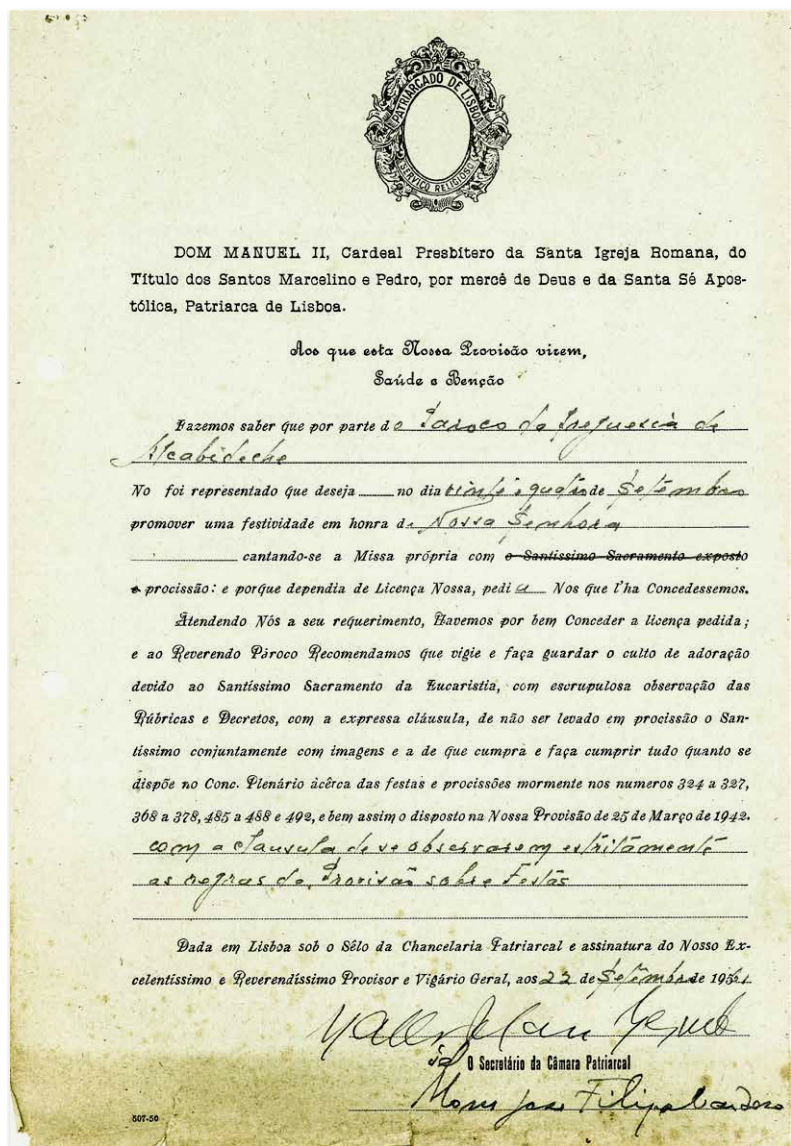 PATRIARCADO DE LISBOA
SERVIÇO RELIGIOSO
DOM MANUEL II, Cardeal Presbítero da Santa Igreja Romana, do
Título dos Santos Marcelino e Pedro, por mercê de Deus e da Santa Sé Apos-
tólica, Patriarca de Lisboa.
Aos que esta Nossa Provisão virem,
Saúde e Benção
Fazemos saber que por parte do Paroco da freguesia de
Alcabideche
No foi representado que deseja no dia vinte e quatro de Setembro
promover uma festividade em honra de Nossa Senhora
cantando-se a Missa própria com o Santíssimo Sacramento exposto
e procissão: e porque dependia de Licença Nossa, pedia Nos que l'ha Concedessemos.
Atendendo Nós a seu requerimento, Havemos por bem Conceder a licença pedida;
e ao Reverendo Pároco Recomendamos que vigie e faça guardar o culto de adoração
devido ao Santíssimo Sacramento da Eucaristia, com escrupulosa observação das
Rúbricas e Decretos, com a expressa cláusula, de não ser levado em procissão o San-
tíssimo conjuntamente com imagens e a de que cumpra e faça cumprir tudo quanto se
dispõe no Conc. Plenário àcêrca das festas e procissões mormente nos numeros 324 a 327,
368 a 378, 485 a 488 e 492, e bem assim o disposto na Nossa Provisão de 25 de Março de 1942.
com a clausula de se observarem estritamente
as regras da Provisão sobre Festas
Dada em Lisboa sob o Sêlo da Chancelaria Patriarcal e assinatura do Nosso Ex-
celentíssimo e Reverendíssimo Provisor e Vigário Geral, aos 22 de Setembro de 1961
O Secretário da Câmara Patriarcal
Mons José Filipe
507-50